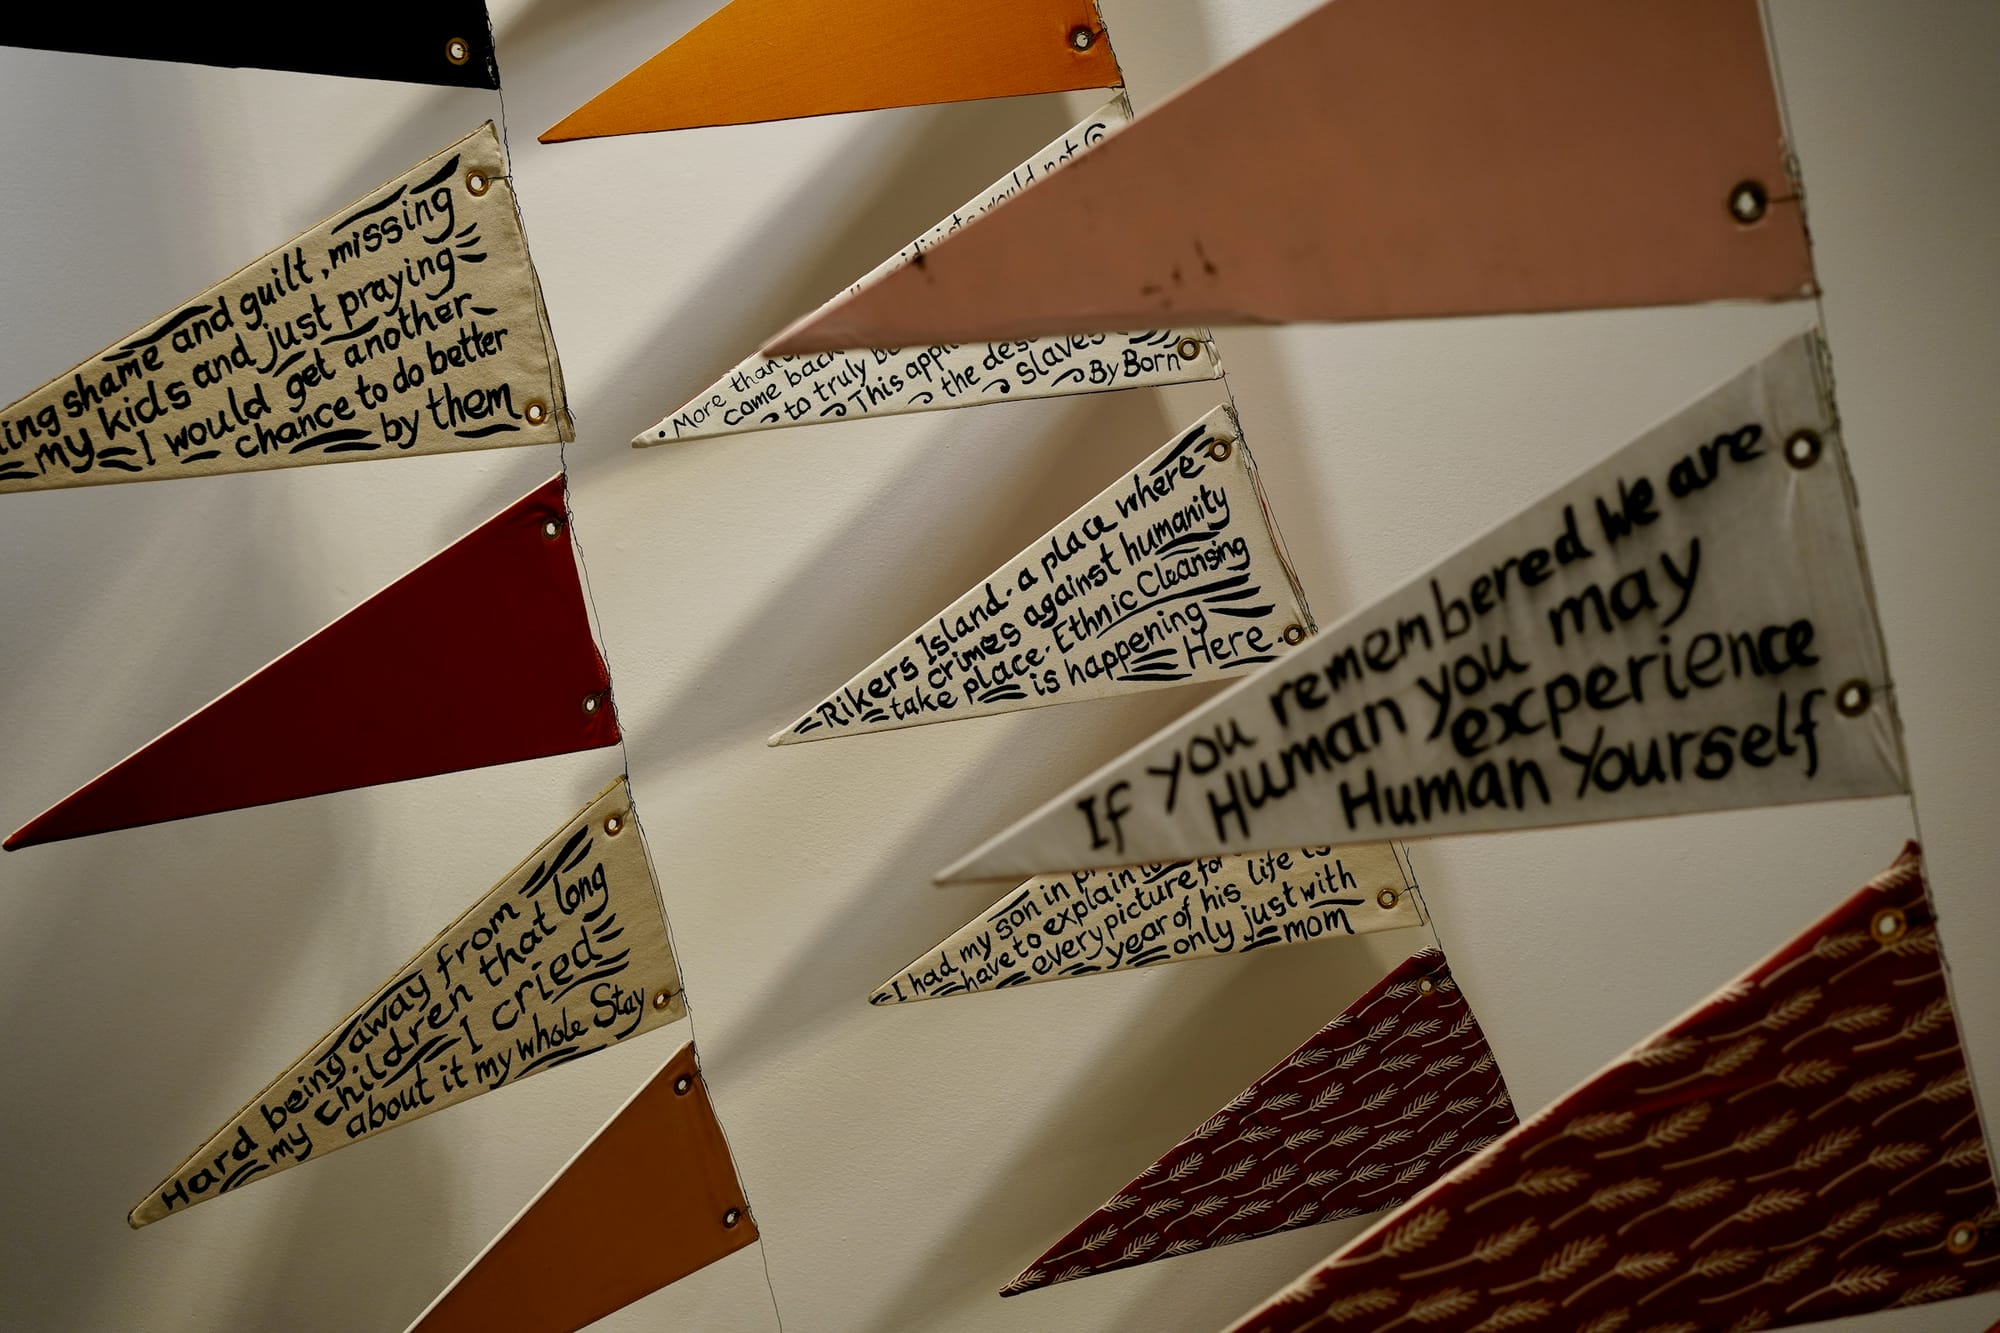 ling shame and guilt, missing
my kids and just praying
I would get another
chance to do better
by them
Hard being away from
my children that long
about it I cried
my whole Stay
would not
More than
come back
to truly
This
the
Slaves
By Born
Rikers Island. a place where
crimes against humanity
take place. Ethnic Cleansing
is happening
Here.
If you remembered We are
Human you may
experience
Human Yourself
I had my son in
have to explain
every picture for
year of his life is
only just with
mom